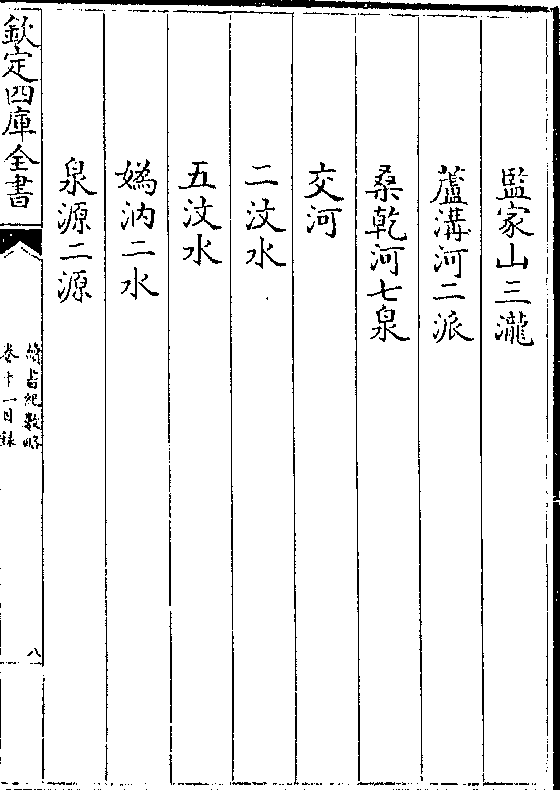 監家山三瀧
蘆溝河二派
桑乾河七泉
交河
二汶水
五汶水
媯汭二水
泉源二源
欽定四庫全書
卷十一目錄
八